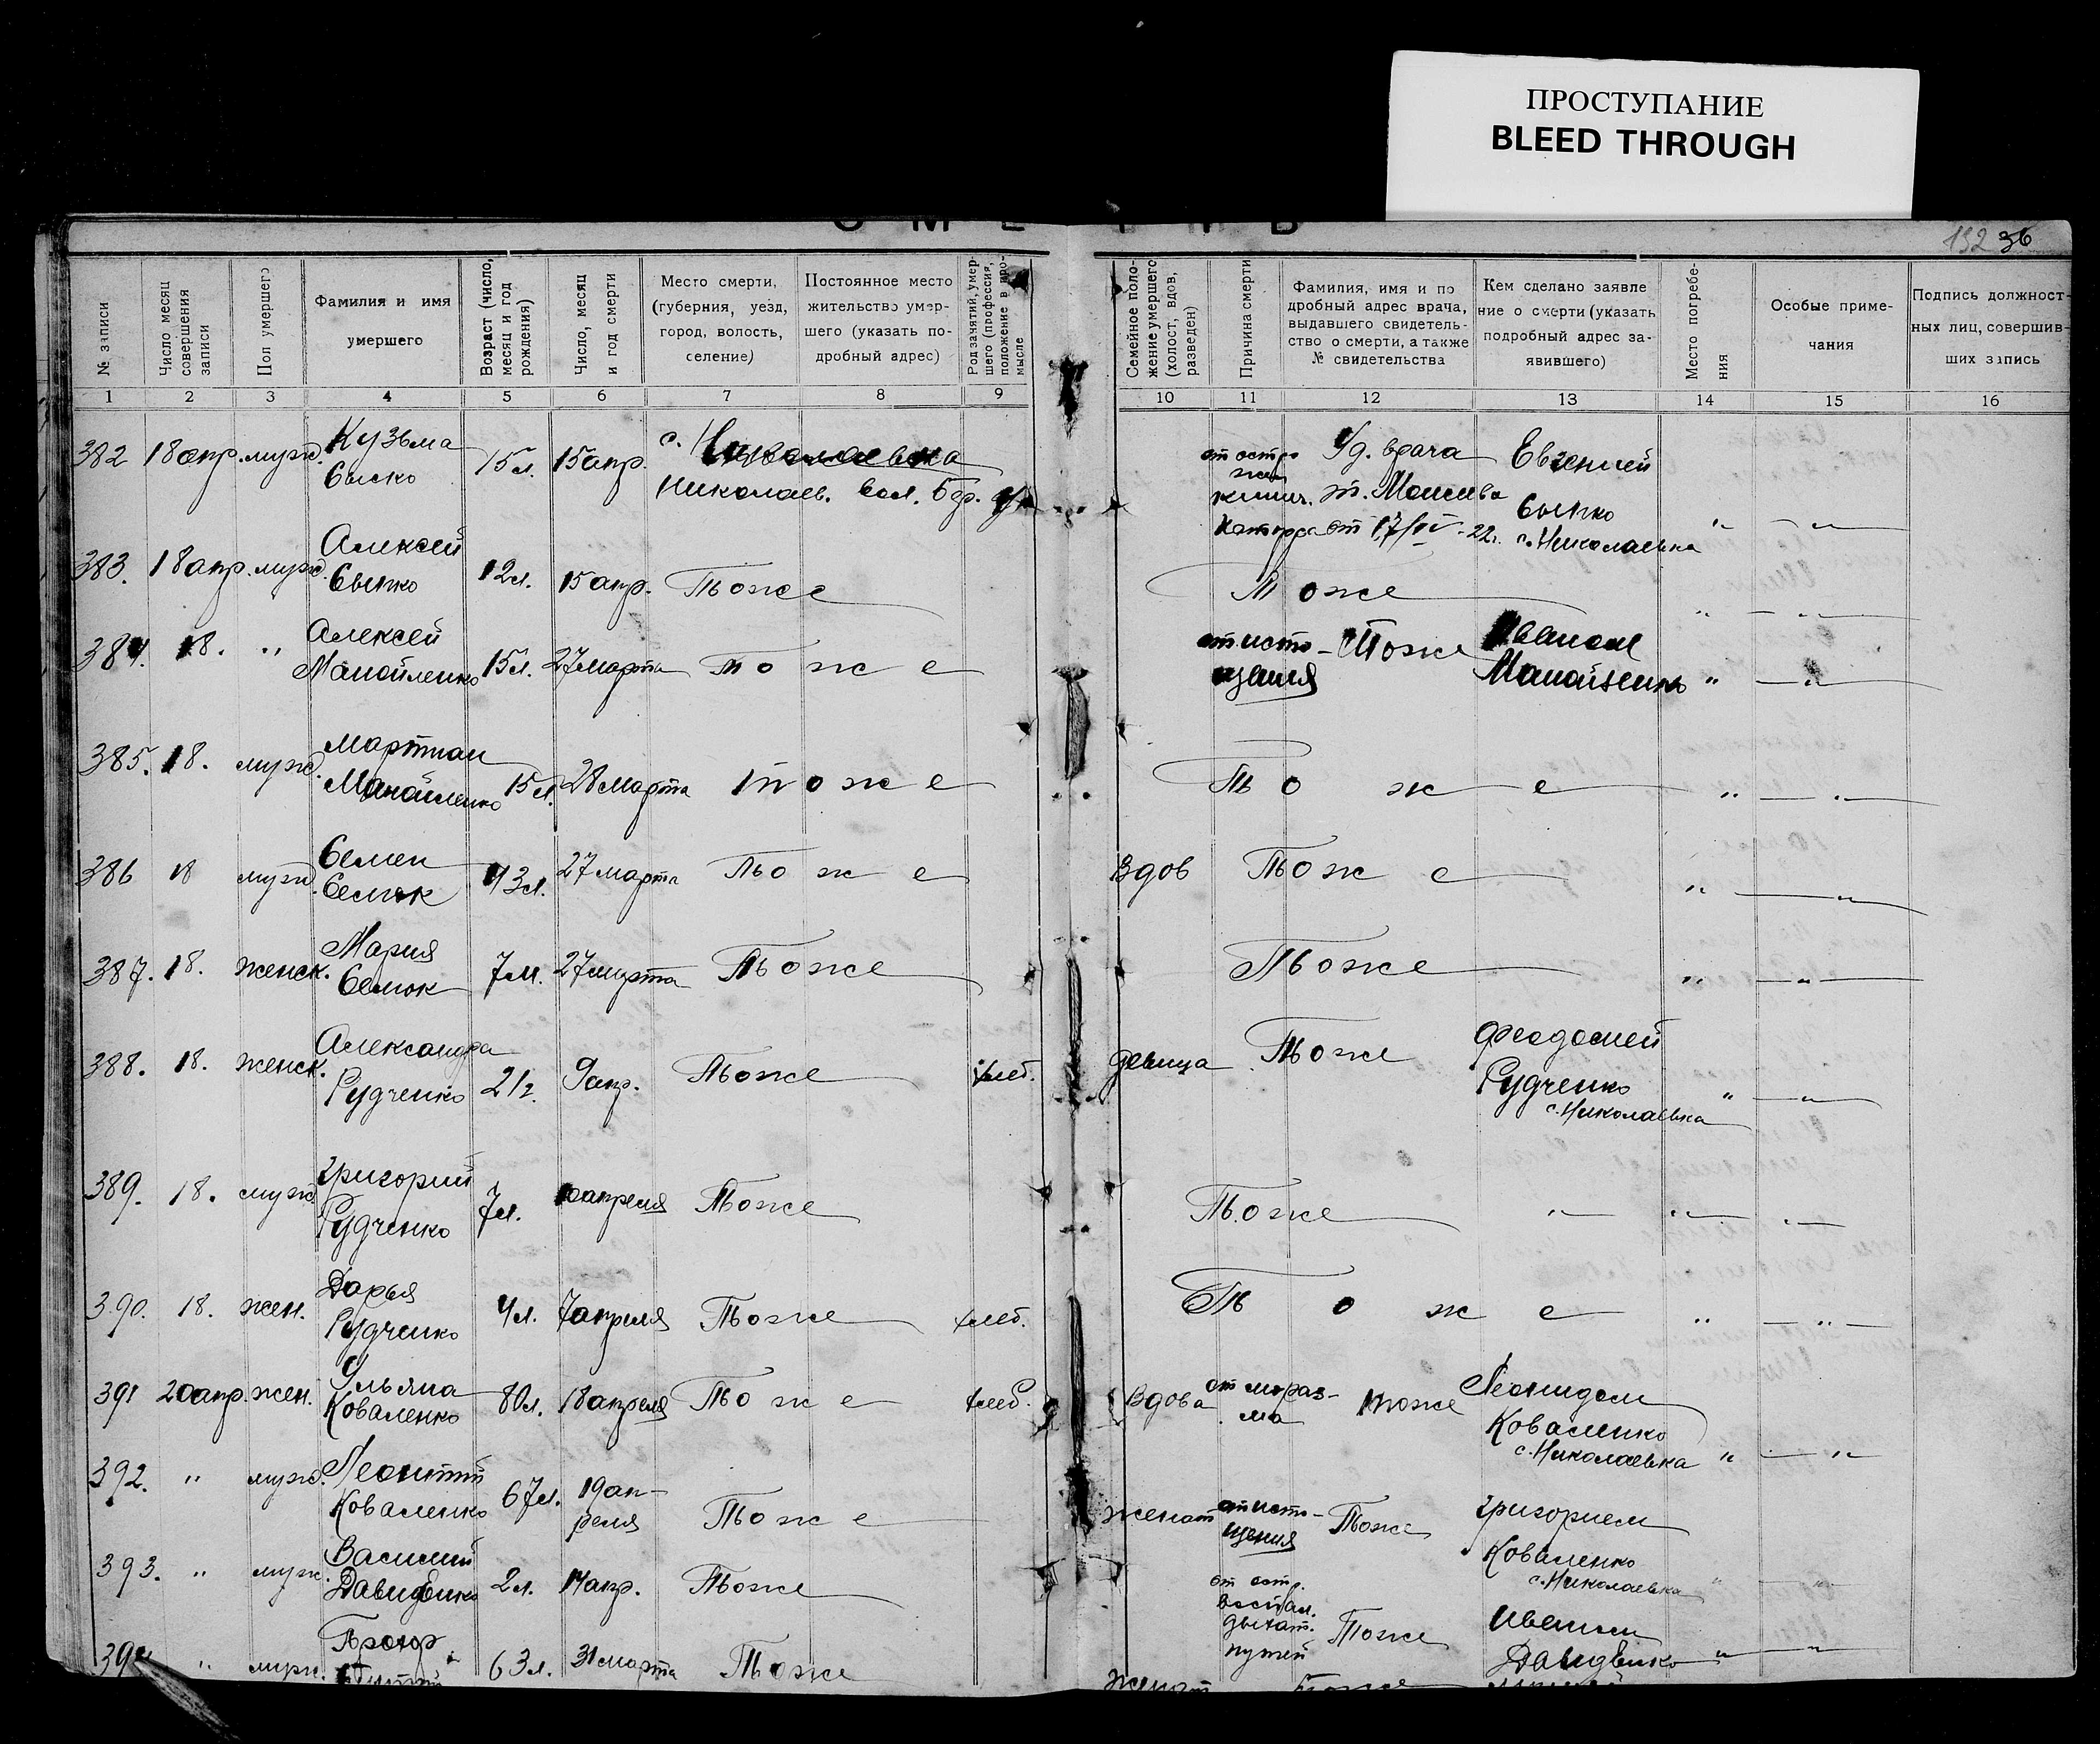 ПРОСТУПАНИЕ
BLEED THROUGH
192 36
№ записи
Число месяц совершения записи
Пол умершего
Фамилия и имя умершего
Возраст (число, месяц и год рождения)
Число, месяц и год смерти
Место смерти, (губерния, уезд, город, волость, селение)
Постоянное место жительство умершего (указать подробный адрес)
Род занятий, умершего (профессия, положение в промысле
Семейное положение умершего (холост, вдов, разведен)
Причина смерти
Фамилия, имя и по дробный адрес врача, выдавшего свидетельство о смерти, а также № свидетельства
Кем сделано заявле ние о смерти (указать подробный адрес заявившего)
Место погребения
Особые примечания
Подпись должностных лиц, совершивших запись
1 2 3 4 5 6 7 8 9 10 11 12 13 14 15 16
382 18 апр. муж. Кузьма 15 л. 15 апр. с. Николаевка
николаев. вол.
Уд. врача
от 17/IV-22 г.
Евгений
с. Николаевка
383. 18 апр. муж. Алексей 12 л. 15 апр. Тоже Тоже
384. 18. " Алексей Манойленко 15 л. 27 марта тоже от исто-щения Тоже Иваном Манойленко " — " —
385. 18. муж. Мартиан Манойленко 15 л. 28 марта тоже Тоже " — " —
386 18 муж. Семен Семок 43 л. 27 марта Тоже Вдов Тоже " — " —
387. 18. женск. Мария Семок 7 м. 27 марта Тоже Тоже " — " —
388. 18. женск. Александра Рудченко 21 г. 9 апр. Тоже хлеб. девица Тоже Феодосией Рудченко с. Николаевка " — " —
389. 18. муж. Григорий Рудченко 7 л. 10 апреля Тоже Тоже " " "
390. 18. жен. Дарья Рудченко 4 л. 7 апреля Тоже хлеб. Тоже " — " —
391 20 апр. жен. Ульяна Коваленко 80 л. 18 апреля Тоже хлеб. Вдова от мараз-ма тоже Леонидом Коваленко с. Николаевка " — "
392. " муж. Леонтий Коваленко 67 л. 19 ап-реля Тоже женат от исто-щения Тоже Григорием Коваленко с. Николаевка
393. " муж. Василий Давиденко 2 л. 14 апр. Тоже от остр. воспал. дыхат. путей Тоже Иваном Давиденко " — "
394 " муж. Прохор 63 л. 31 марта Тоже
женат Тоже